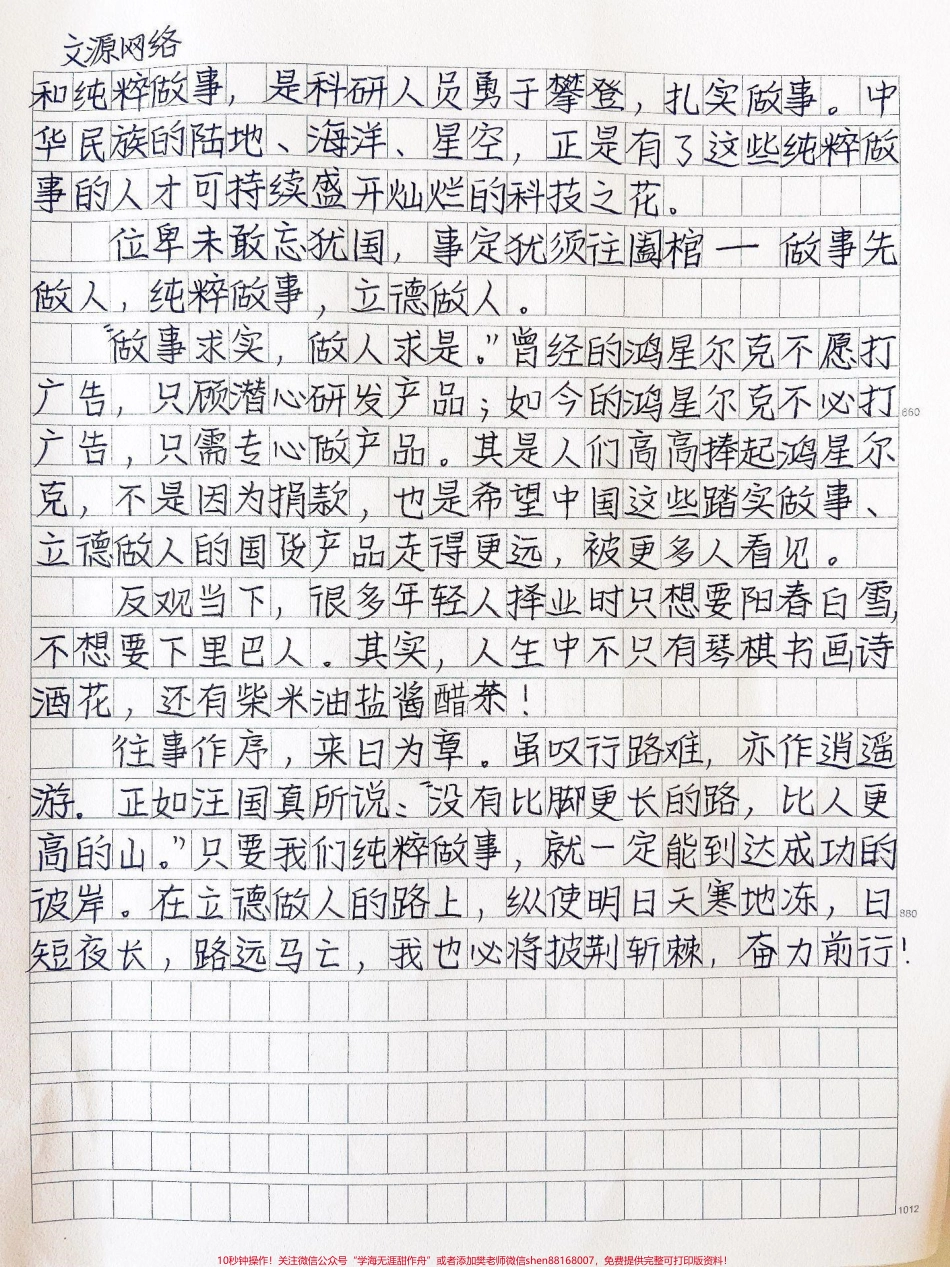 文源网络
和纯粹做事，是科研人员勇于攀登，扎实做事。中
华民族的陆地、海洋、星空，正是有了这些纯粹做
事的人才可持续盛开灿烂的科技之花。
位卑未敢忘犹国，事定犹须往阖棺—做事先
做人，纯粹做事，立德做人。
“做事求实，做人求是。”曾经的鸿星尔克不愿打
广告，只顾潜心研发产品；如今的鸿星尔克不必打
660
广告，只需专心做产品。其是人们高高捧起鸿星尔
克，不是因为捐款，也是希望中国这些踏实做事、
立德做人的国货产品走得更远，被更多人看见。
反观当下，很多年轻人择业时只想要阳春白雪，
不想要下里巴人。其实，人生中不只有琴棋书画诗
酒花，还有柴米油盐酱醋茶！
往事作序，来日为章。虽叹行路难，亦作逍遥
游．正如汪国真所说：“没有比脚更长的路，比人更
高的山。”只要我们纯粹做事，就一定能到达成功的
彼岸。在立德做人的路上，纵使明日天寒地冻，日
880
短夜长，路远马亡，我也必将披荆斩棘，奋力前行！
1012
10秒钟操作！关注微信公众号“学海无涯甜作舟”或者添加樊老师微信shen88168007，免费提供完整可打印版资料！